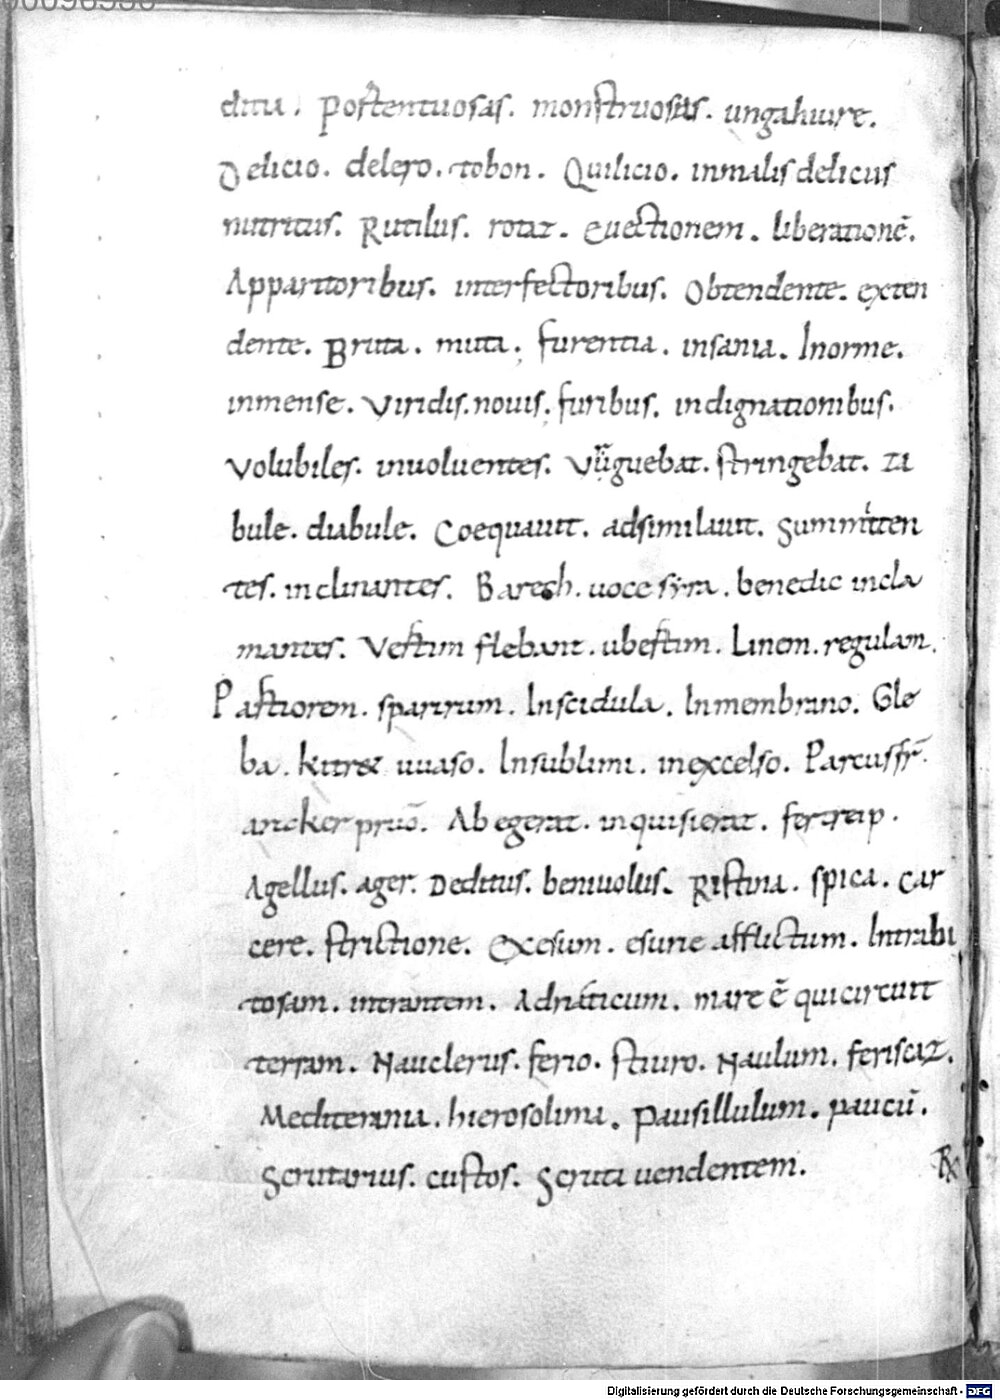 ditia. portentuosas. monstruosas. ungahiure.
Delicio. delero. tobon. Quilicio. inmalis delicus
nutritus. Rutilus. rotaz. Euectionem. liberationē.
Apparitoribus. interfectoribus. Obtendente. exten
dente. Bruta. muta. furentia. insania. Inorme.
inmense. Viridis. nouis. furibus. indignationibus.
Volubiles. inuoluentes. stringebat. za
bule. diabule. Coequauit. adsimilauit. Summitten
tes. inclinantes. Barech. uoce syra. benedic incla
mantes. Vestim flebant. ubestim. Linem. regulam.
Pastiorem. sparrum. Inscidula. Inmembrano. Gle
ba. uuaso. Insublimi. inexcelso.
Ab egerat. inquisierat.
Agellus. ager. Deditus. beniuolus. Ristina. spica. Car
cere. strictione. Exesum. esurie afflictum. Intrabi
tosam. intrantem. Adriaticum. mare ē qui circuit
terram. Nauclerus. ferio. stiuro. Naulum. feriscaz.
Mediterania. hierosolima. Pausillulum. paucū.
Scrutarius. custos. Scruta uendentem.
Digitalisierung gefördert durch die Deutsche Forschungsgemeinschaft - DFG